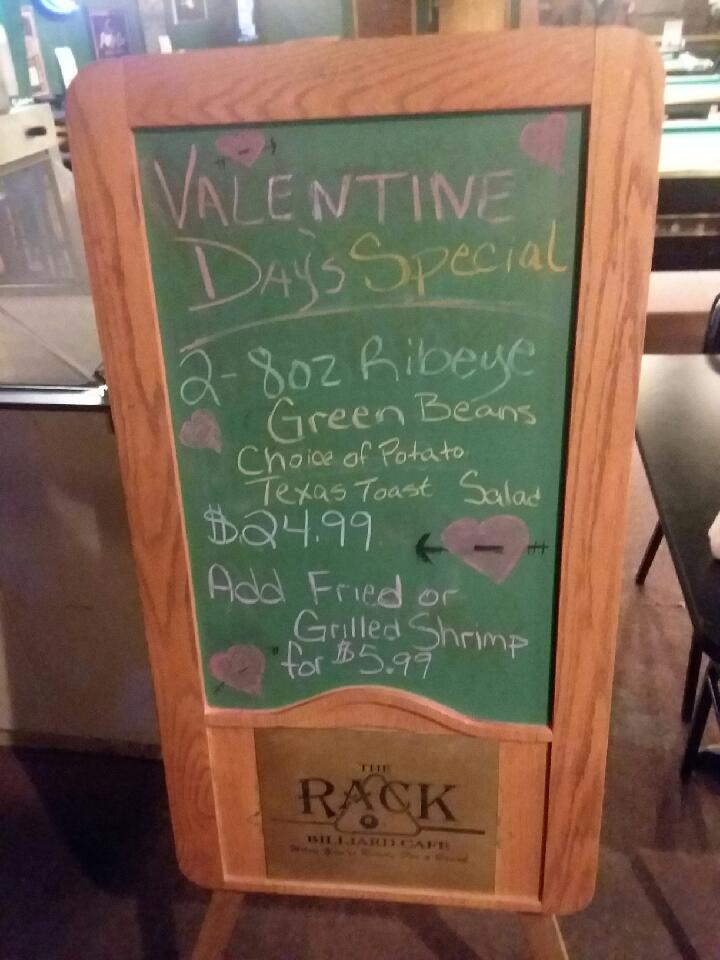 VALENTINE
Day's Special
2-8oz Ribeye
Green Beans
Choice of Potato
Texas Toast Salad
$24.99
Add Fried or
Grilled Shrimp
for $5.99
THE
RACK
BILLIARD CAFE